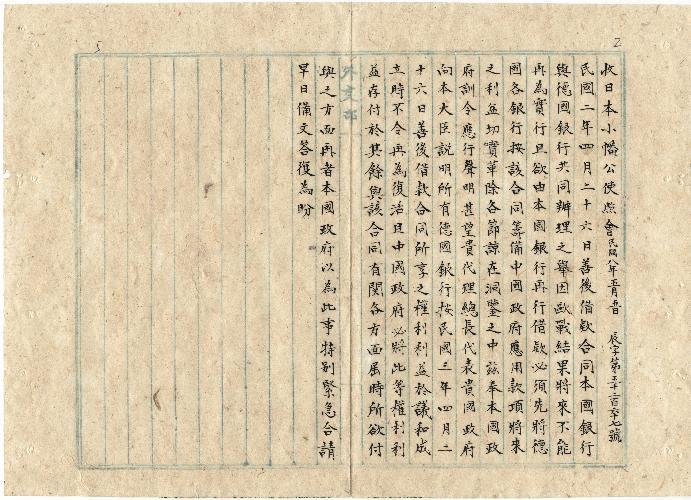 2
5
收日本小幡公使照會民國八年五月 日 辰字第三千三百六十七號
民國二年四月二十六日善後借款合同本國銀行
與德國銀行共同辦理之舉因歐戰結果將來不能
再為實行且欲由本國銀行再行借款必須先將德
國各銀行按該合同籌備中國政府應用款項將來
之利益切實革除各節諒在洞鑒之中茲奉本國政
府訓令應行聲明甚望貴代理總長代表貴國政府
向本大臣説明所有德國銀行按民國二年四月二
十六日善後借款合同所享之權利利益於議和成
立時不令再為復活且中國政府必將此等權利利
益存付於其餘與該合同有關各方面屆時所欲付
外交部
與之方面再者本國政府以為此事特別緊急合請
早日備文答復為盼